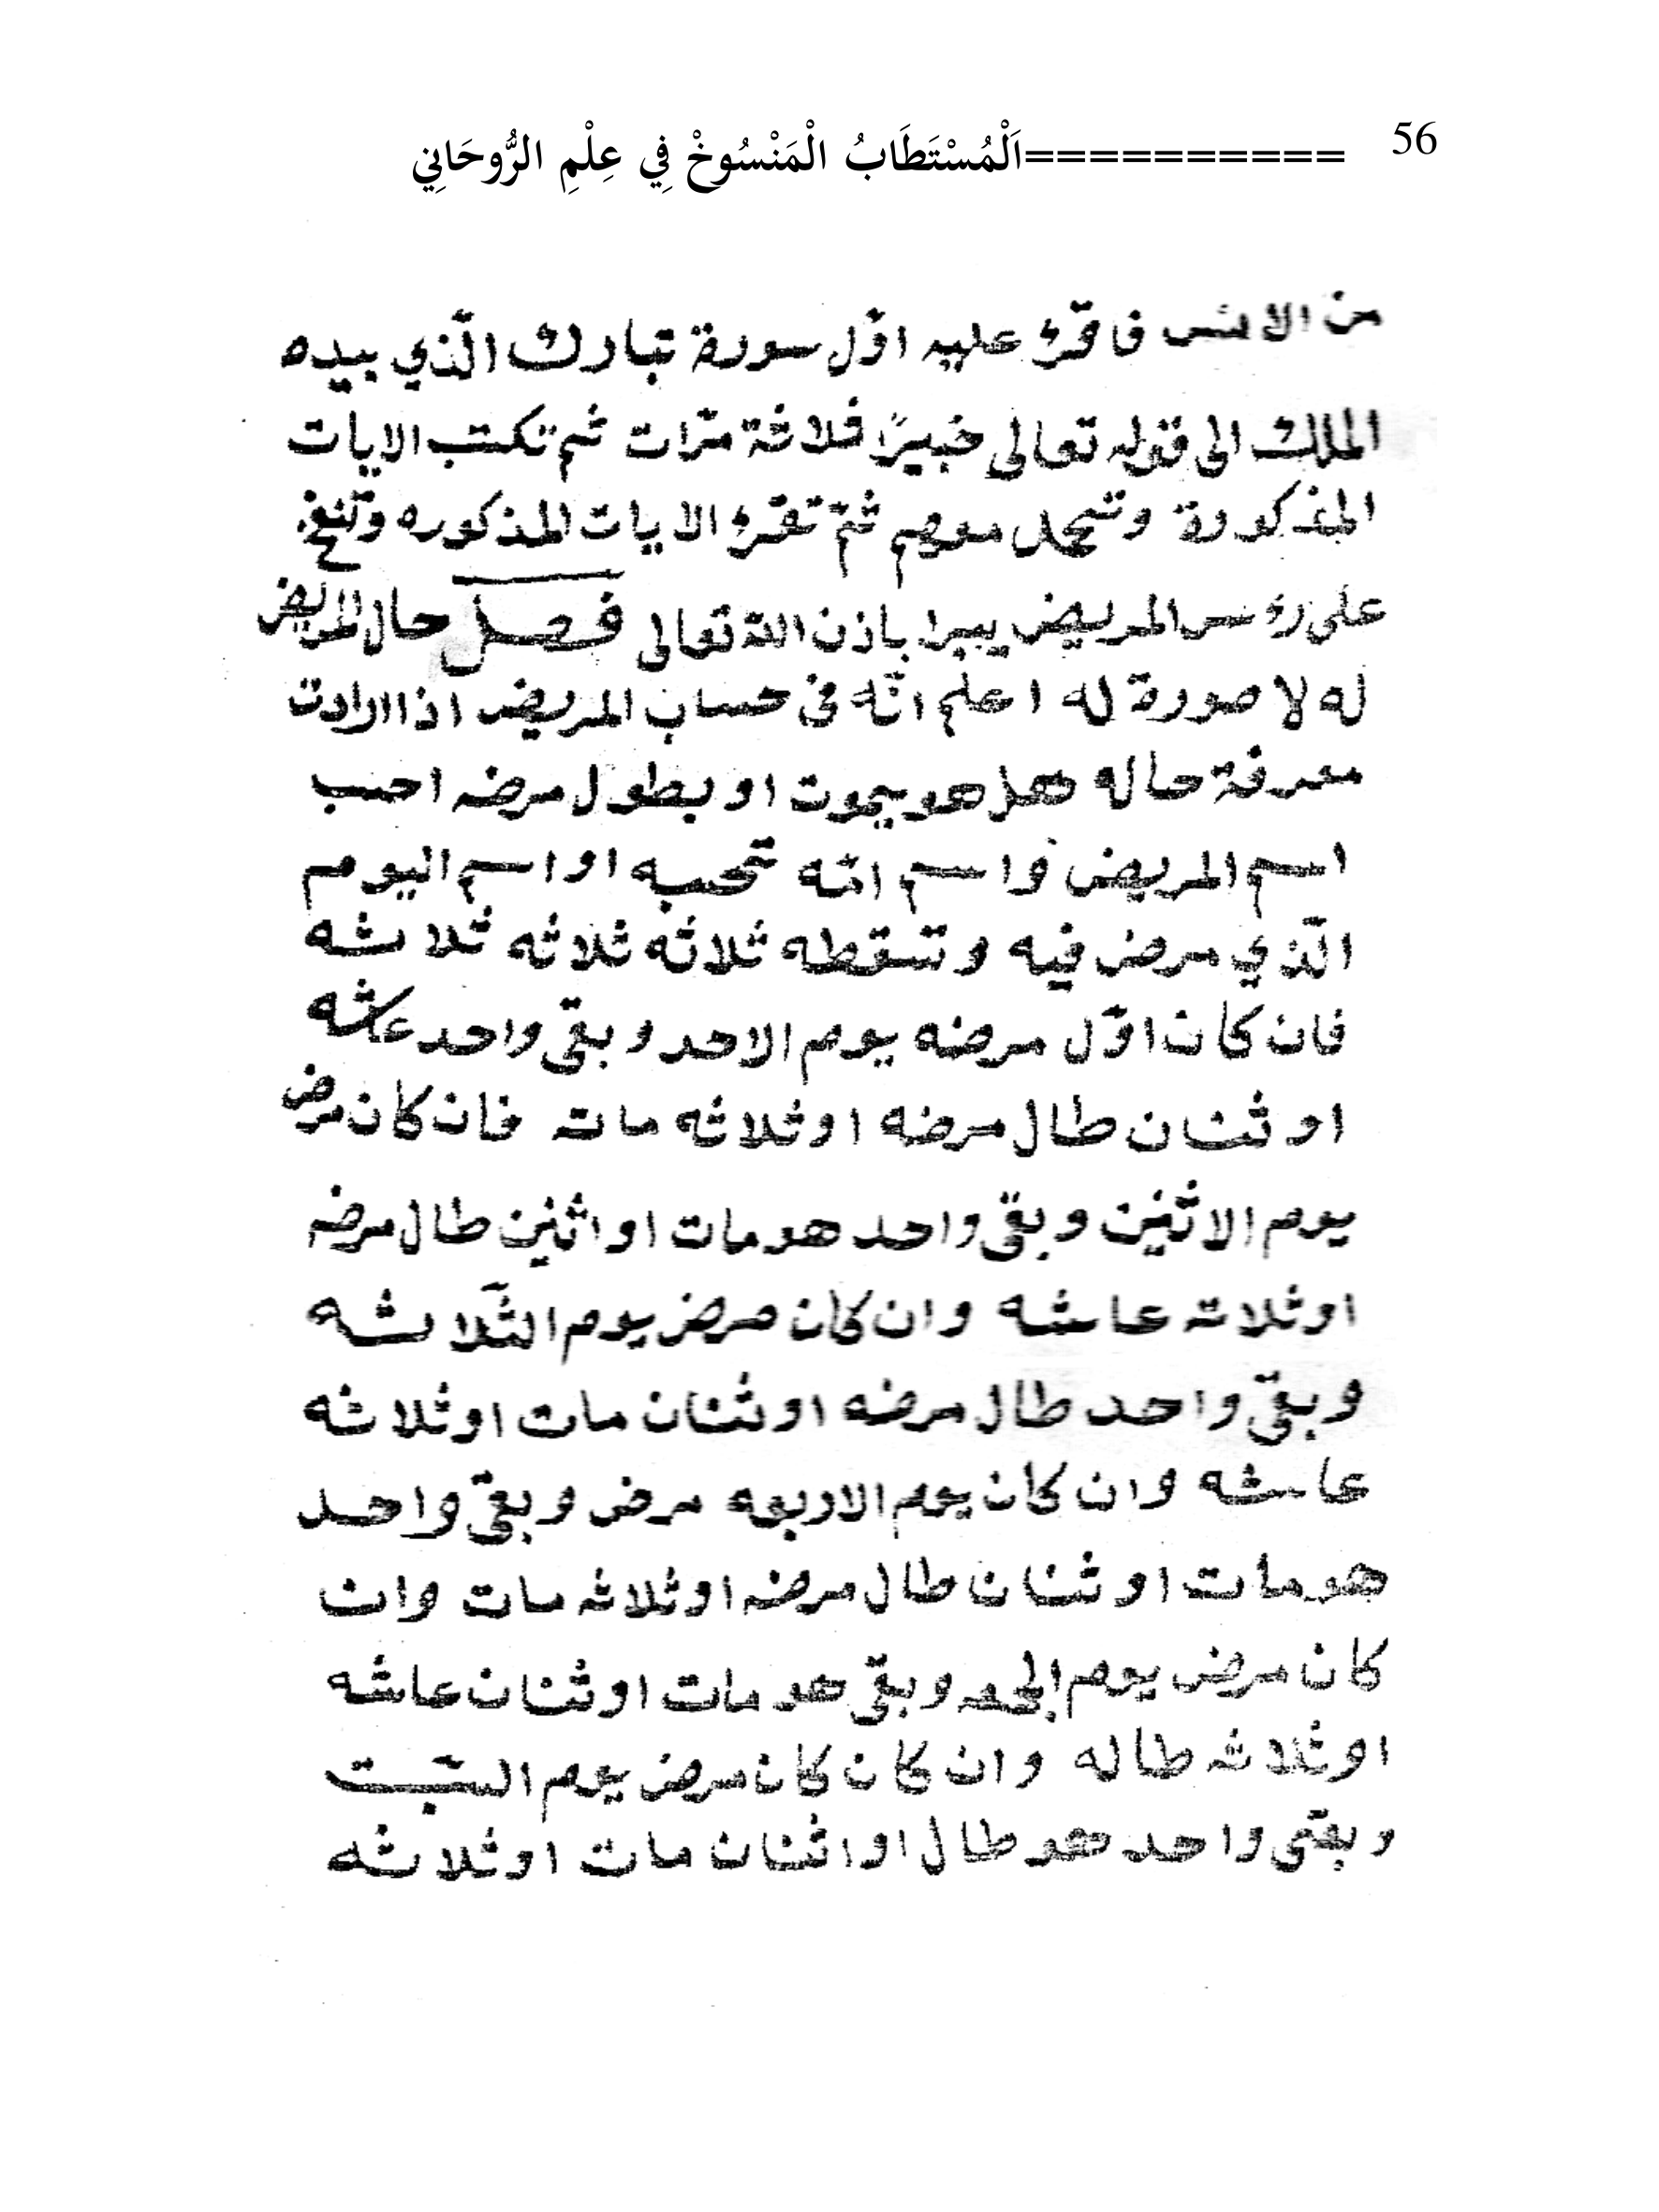 56 ==========اَلْمُسْتَطَابُ الْمَنْسُوخْ فِي عِلْمِ الرُّوحَانِي
من الانس فاقرئ عليه اوّل سورة تبارك الّذي بيده
الملك الى قوله تعالى خبيرًا ثلاثة مرّات ثم تكتب الايات
المذكورة وتحمل معهم ثمّ تقرئ الايات المذكوره وتنفخ
على رؤس المريض يبرا باذن الله تعالى فصل حال المريض
له لا صورة له اعلم انّه في حساب المريض اذا ارادت
معرفة حاله هل هو يموت او يطول مرضه احسب
اسم المريض واسم امّه تحسبه او اسم اليوم
الّذي مرض فيه وتسقطه ثلاثه ثلاثه ثلاثه
فان كان اوّل مرضه يوم الاحد وبقي واحد عاشه
او ثنان طال مرضه او ثلاثه مات فان كان مرض
يوم الاثنين وبقي واحد هو مات او اثنين طال مرضه
او ثلاته عاشه وان كان مرض يوم الثّلاثه
وبقي واحد طال مرضه او ثنان مات او ثلاثه
عاشه وان كان يوم الاربعه مرض وبقي واحد
هو مات او ثنان طال مرضه او ثلاثه مات وان
كان مرض يوم الجمعه وبقي هو مات او ثنان عاشه
او ثلاثه طاله وان كان كان مرض يوم السّبت
وبقي واحد هو طال او اثنان مات او ثلاثه